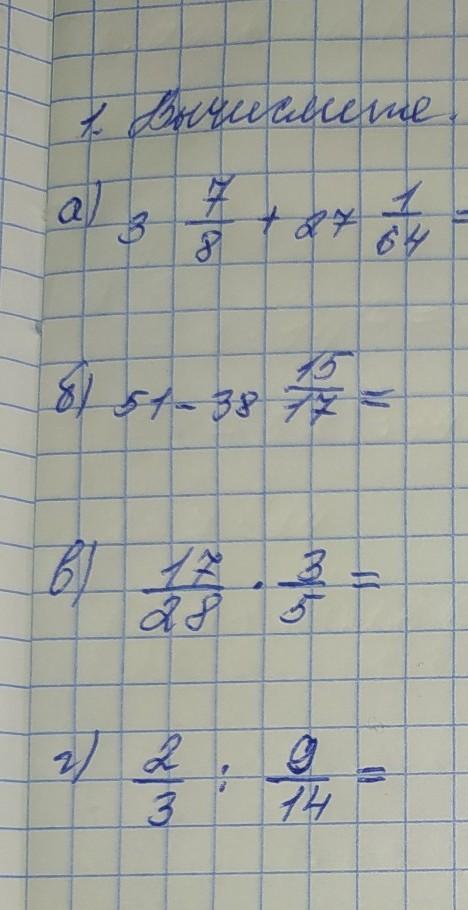 1. Вычислите.
а) 3 7/8 + 27 1/64 =
б) 51 - 38 15/17 =
в) 17/28 · 3/5 =
г) 2/3 : 9/14 =